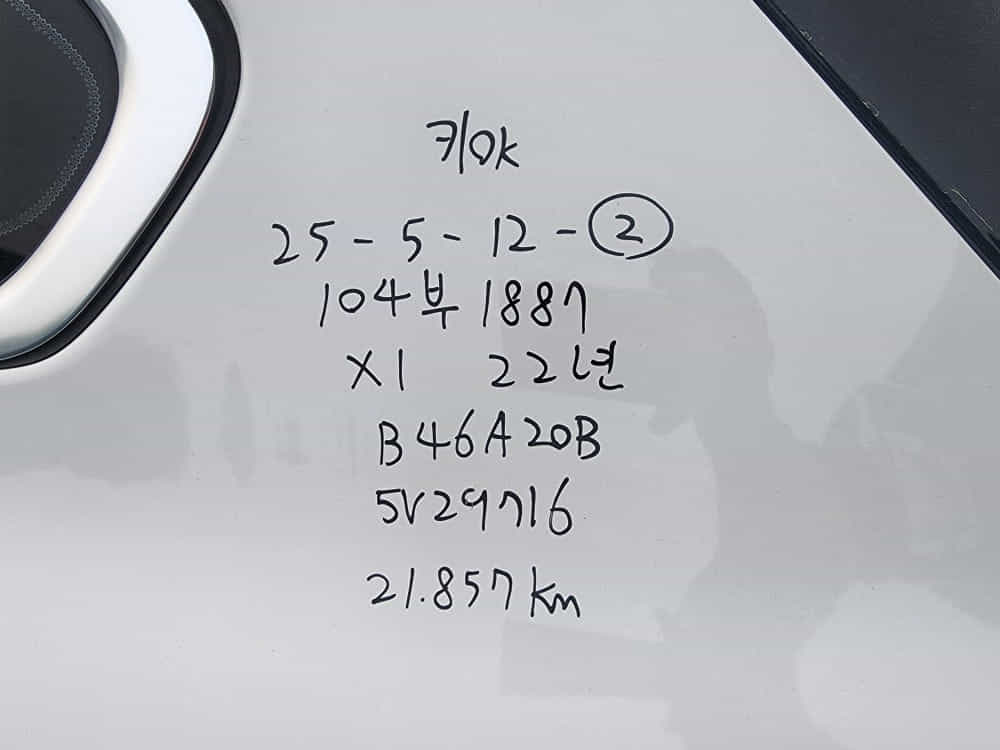 키ok
25-5-12-②
104부1887
X1 22년
B46A20B
5V29716
21.857km